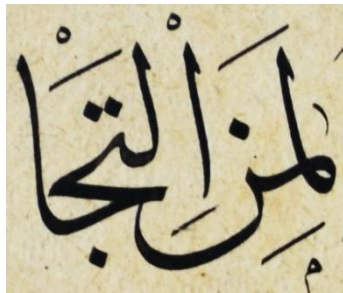 لمن التجا